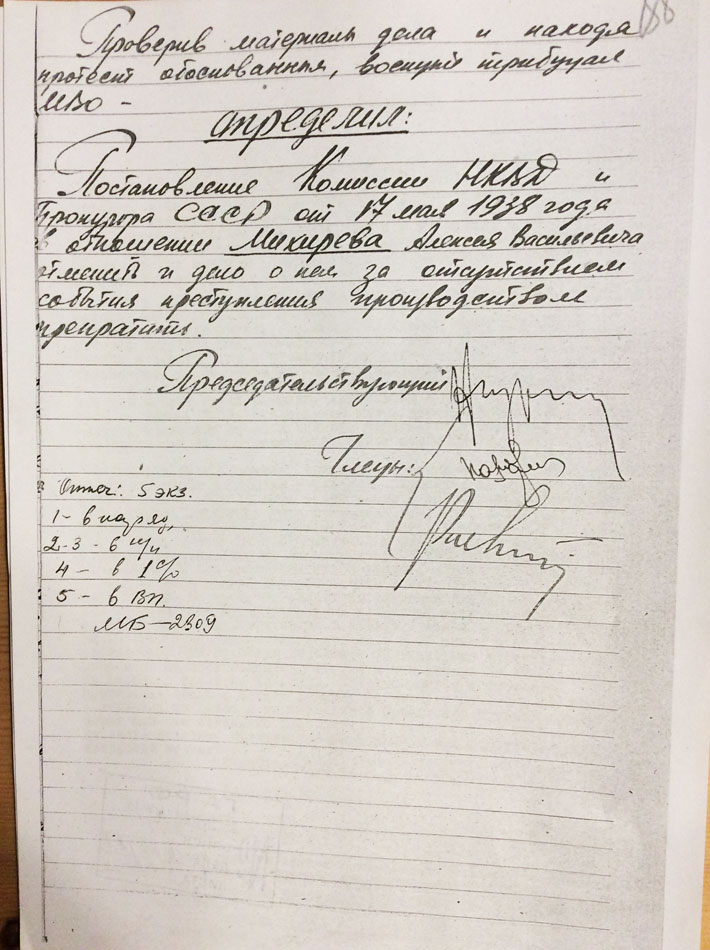 188
Проверив материалы дела и находя
протест обоснованным, военный трибунал
МВО –
определил:
Постановление Комиссии НКВД и
Прокурора СССР от 17 мая 1938 года
в отношении Михирева Алексея Васильевича
отменить и дело о нем за отсутствием
события преступления производством
прекратить.
Председательствующий
Члены:
Отпеч: 5 экз.
1 – в наряд,
2-3 – в н/п
4 – в
5 – в ВП.
МБ – 2309